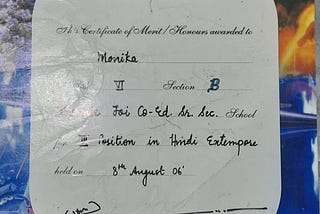 This Certificate of Merit/Honours awarded to
Monika
VI Section B
Jai Co-Ed Sr. Sec. School
for III Position in Hindi Extempore
held on 8th August 06'